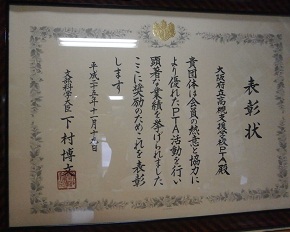 表彰状
大阪府立高槻支援学校PTA殿
貴団体は会員の熱意と協力に
より優れたPTA活動を行い
顕著な業績を挙げられました
ここに奨励のためこれを表彰
します
平成二十五年十一月十五日
文部科学大臣 下村博文